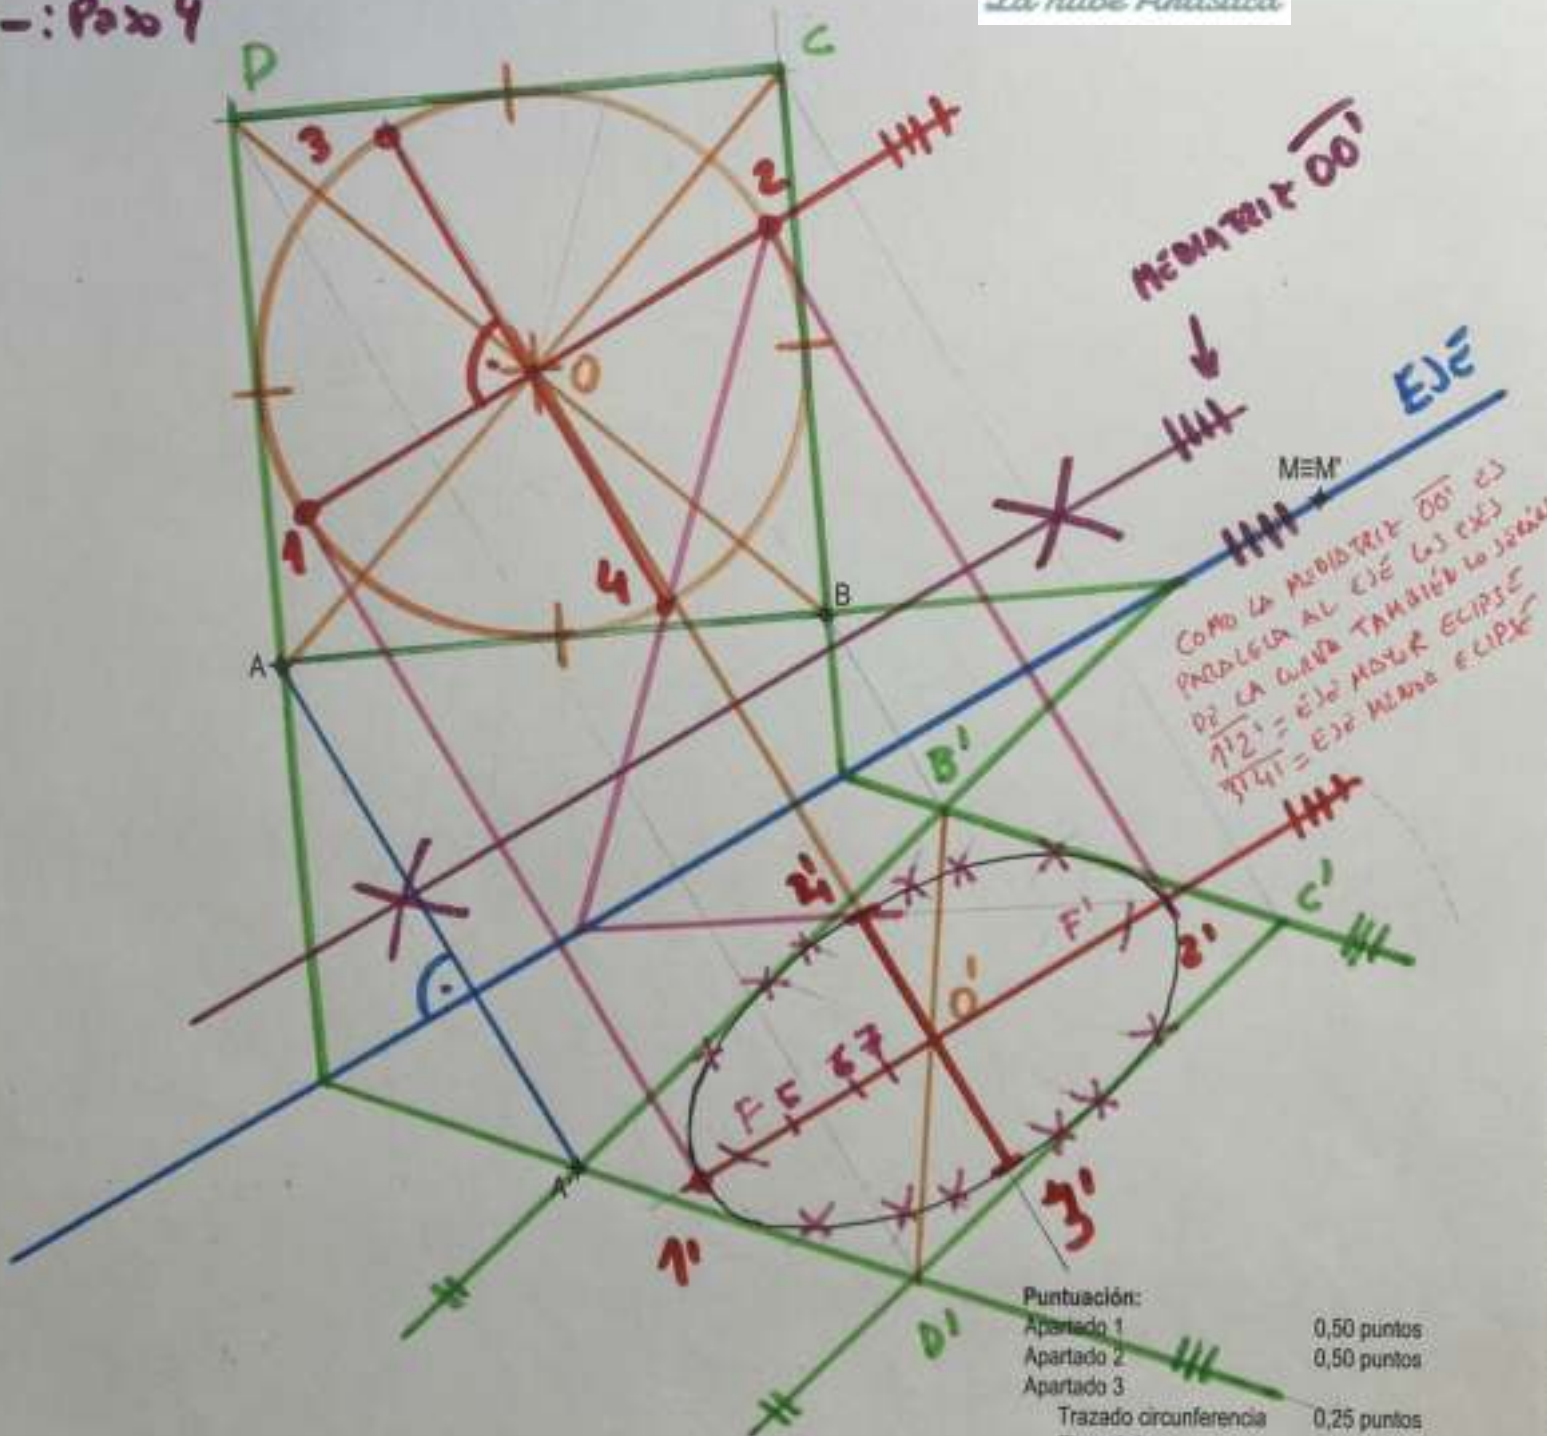 -: Paso 4
La nube Artística
D
C
3
2
MEDIATRIZ OO'
O
EJE
M≡M'
1
4
B
A
COMO LA MEDIATRIZ OO' ES
PARALELA AL EJE LOS EJES
DE LA CURVA TAMBIÉN LO SERÁN
1'2' = EJE MAYOR ELIPSE
3'4' = EJE MENOR ELIPSE
B'
4'
C'
F'
2'
O'
F 5 6 7
A'
1'
3'
D'
Puntuación:
Apartado 1 0,50 puntos
Apartado 2 0,50 puntos
Apartado 3
Trazado circunferencia 0,25 puntos